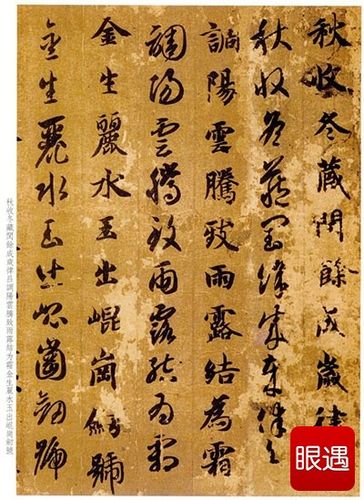 秋收冬藏閏餘成歲律
秋收冬藏閏餘成歲律呂
調陽雲騰致雨露結為霜
調陽雲騰致雨露結為霜
金生麗水玉出崐崗劍號
金生麗水玉出崐崗劍號
秋收冬藏閏餘成歲律呂調陽雲騰致雨露結为霜金生麗水玉出崐崗劍號
眼遇